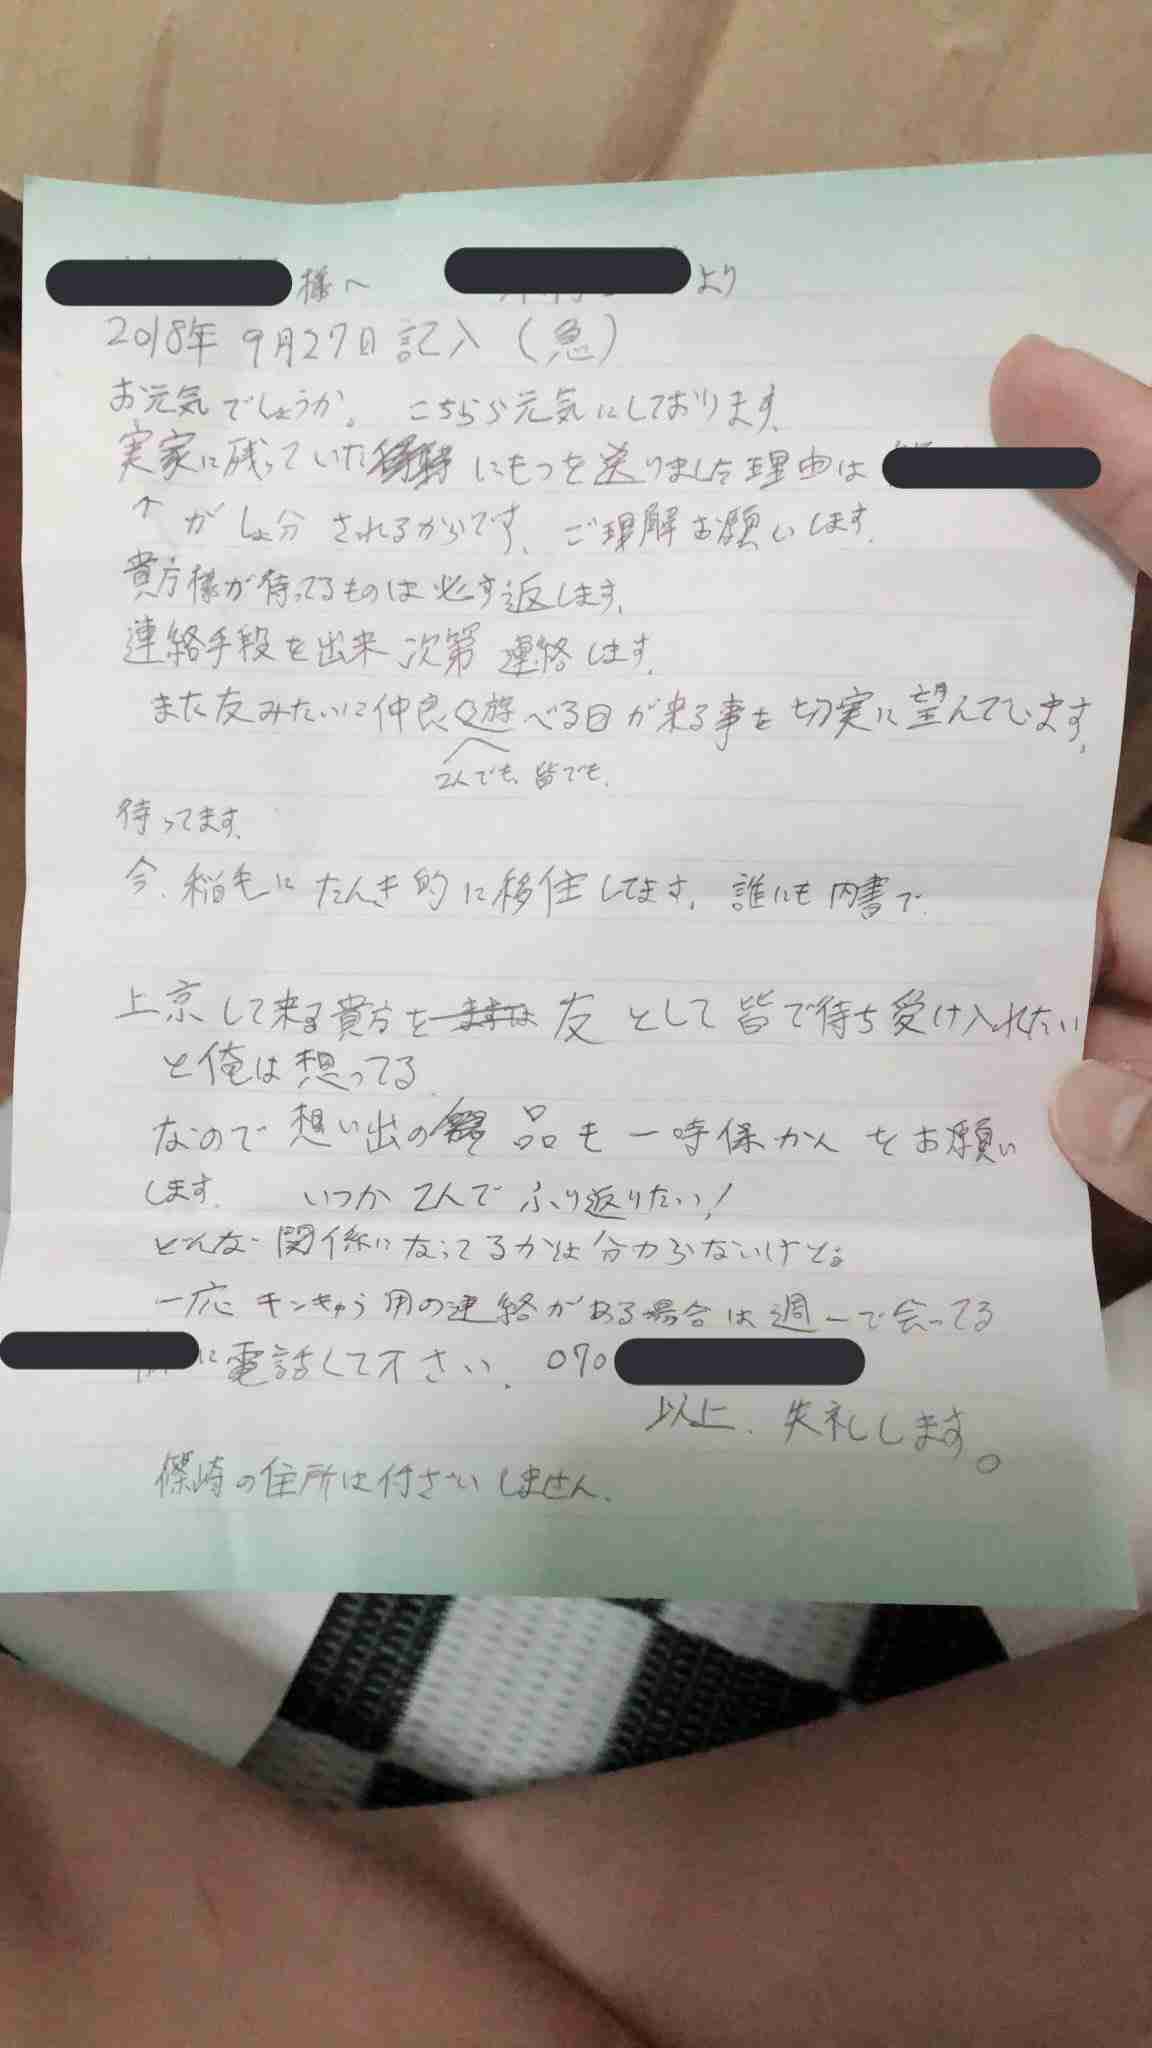 様へ より
2018年 9月27日 記入 (急)
お元気でしょうか。 こちらら元気にしております。
実家に残っていた にもつを送りました理由は
↑ がしょ分 されるからです、 ご理解お願いします。
貴方様が待ってるものは必す返します。
連絡手段を出来 次第 連絡します。
また友みたいに仲良く遊べる日が来る事を切実に望んでています。
2人でも、皆でも、
待ってます。
今、稲毛に たんき的に移住してます。 誰にも内書で、
上京して来る貴方を 友 として 皆で待ち受け入れたい
と俺は想ってる
なので 想い出の 品も 一時保かん をお願い
します。 いつか 2人で ふり返りたい!
どんな 関係に なってるかは分からないけど。
一応 キンキゅう用の連絡がある場合は週一で会ってる
に電話して下さい、 070
以上、 失礼します。
篠崎の住所は付さいしません、